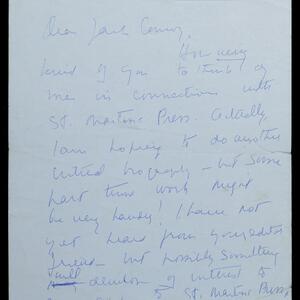 Dear Jack
How very
kind of you to think of
me in connection with
St. Martins Press. Actually,
I am hoping to do another
critical biography – but some
part time work might
be very handy! I have not
yet heard from your
friend – but possibly something
will of interest to
St. Martins Press,